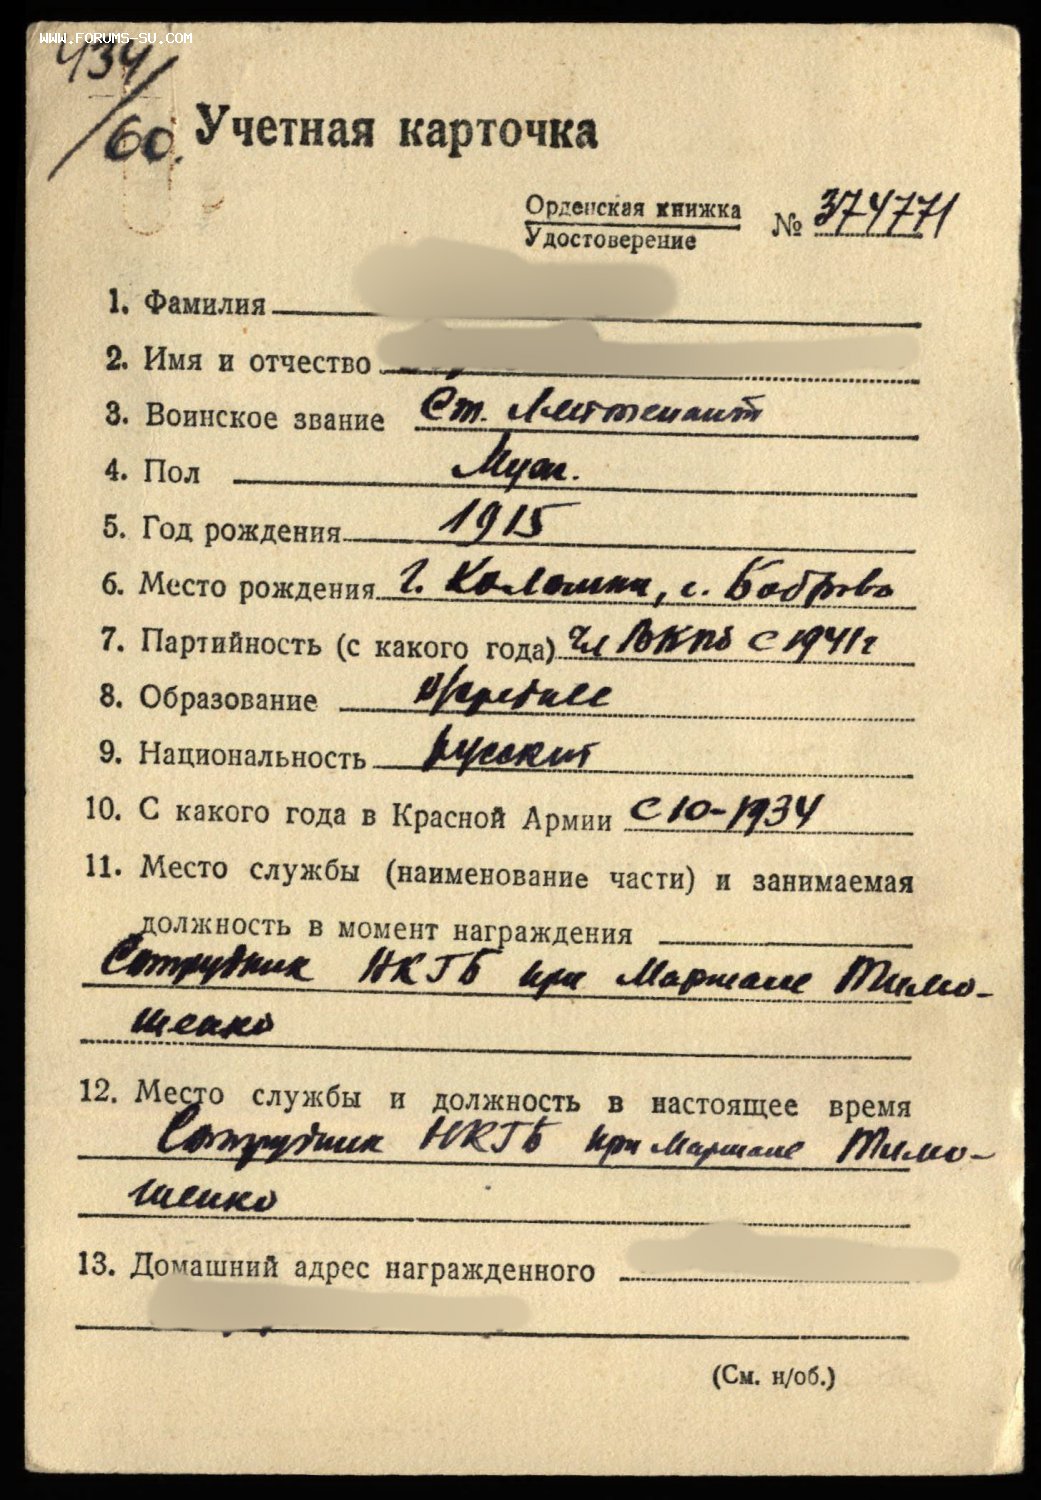 WWW.FORUMS-SU.COM
434/60.
Учетная карточка
Орденская книжка
Удостоверение
№ 374771
1. Фамилия
2. Имя и отчество
3. Воинское звание Ст. Лейтенант
4. Пол Муж.
5. Год рождения 1915
6. Место рождения г. Коломна, с. Боброво
7. Партийность (с какого года) Чл ВКПб с 1941 г
8. Образование н/среднее
9. Национальность русский
10. С какого года в Красной Армии с 10-1934
11. Место службы (наименование части) и занимаемая
должность в момент награждения
Сотрудник НКГБ при Маршале Тимо-
шенко
12. Место службы и должность в настоящее время
Сотрудник НКГБ при Маршале Тимо-
шенко
13. Домашний адрес награжденного
(См. н/об.)